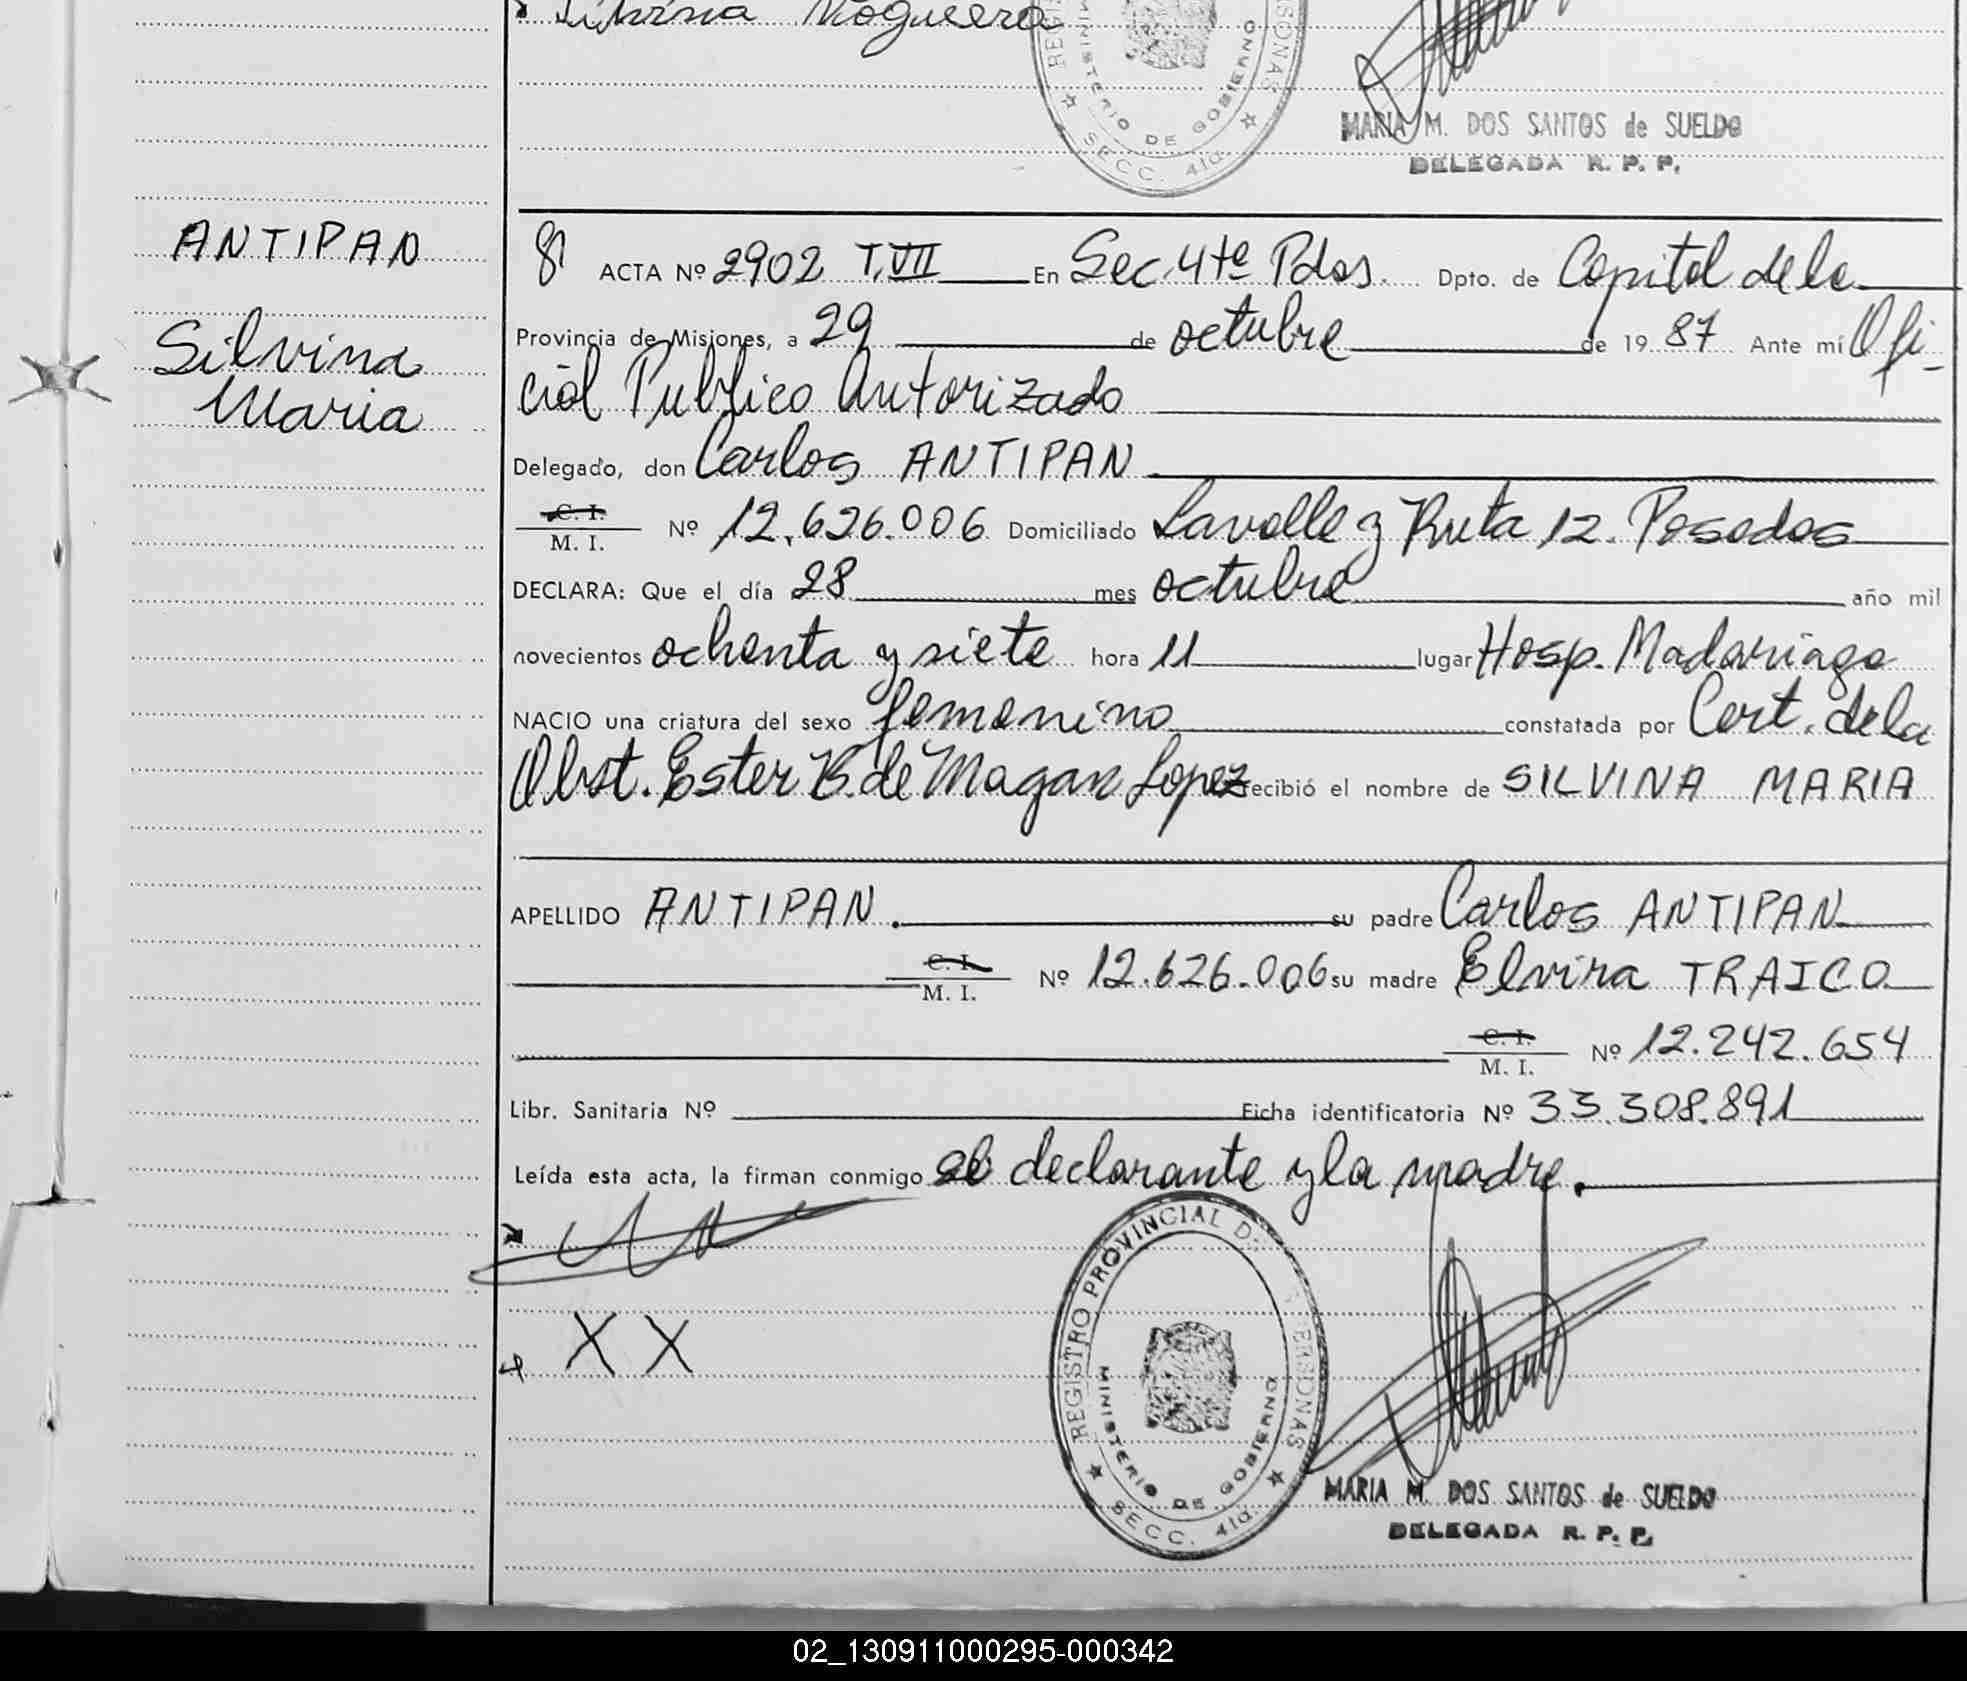 Silvina Noguera
REGIS
SONAS
MINISTERIO DE GOBIERNO
SECC. 4ta.
MARIA M. DOS SANTOS de SUELDO
DELEGADA R. P. P.
ANTIPAN
Silvina
Maria
8 ACTA Nº 2902 T.VII En Sec. 4ta Pdas. Dpto. de Capital de la
Provincia de Misiones, a 29 de octubre de 19 87 Ante mí Ofi-
cial Publico Autorizado
Delegado, don Carlos ANTIPAN
C. I.
M. I. Nº 12.626.006 Domiciliado Lavalle y Ruta 12. Posadas
DECLARA: Que el día 28 mes octubre año mil
novecientos ochenta y siete hora 11 lugar Hosp. Madariaga
NACIO una criatura del sexo femenino constatada por Cert. de la
Obst. Ester B. de Magan Lopez recibió el nombre de SILVINA MARIA
APELLIDO ANTIPAN. su padre Carlos ANTIPAN
C. I.
M. I. Nº 12.626.006 su madre Elvira TRAICO
C. I.
M. I. Nº 12.242.654
Libr. Sanitaria Nº Ficha identificatoria Nº 33.308.891
Leída esta acta, la firman conmigo el declarante y la madre.
X X
REGISTRO PROVINCIAL D PERSONAS
MINISTERIO DE GOBIERNO
SECC. 4ta.
MARIA M. DOS SANTOS de SUELDO
DELEGADA R. P. P.
02_130911000295-000342